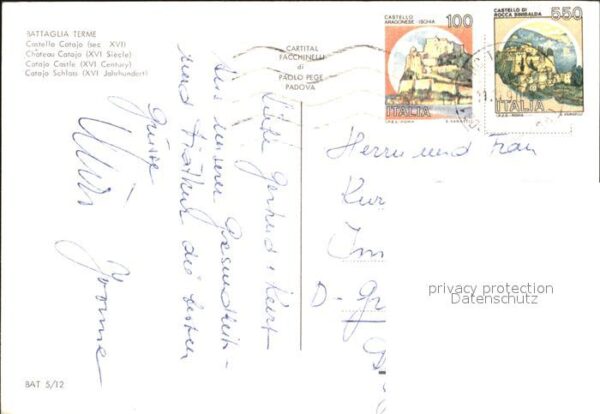 BATTAGLIA TERME
Castello Catajo (sec. XVI)
Château Catajo (XVI Siecle)
Catajo Castle (XVI Century)
Catajo Schloss (XVI Jahrhundert)
CARTITAL
FACCHINELLI
di
PAOLO PEGE
PADOVA
CASTELLO
ARAGONESE ISCHIA
100
ITALIA
I.P.Z.S. ROMA
CASTELLO DI
ROCCA SINIBALDA
550
ITALIA
I.P.Z.S. ROMA
Liebe Gertrud + Kurt
Aus unserer Gesundheit-
und die besten
Grüsse
Yvonne
Herrn und Frau
Kur
Im
D- Gr
privacy protection
Datenschutz
BAT 5/12